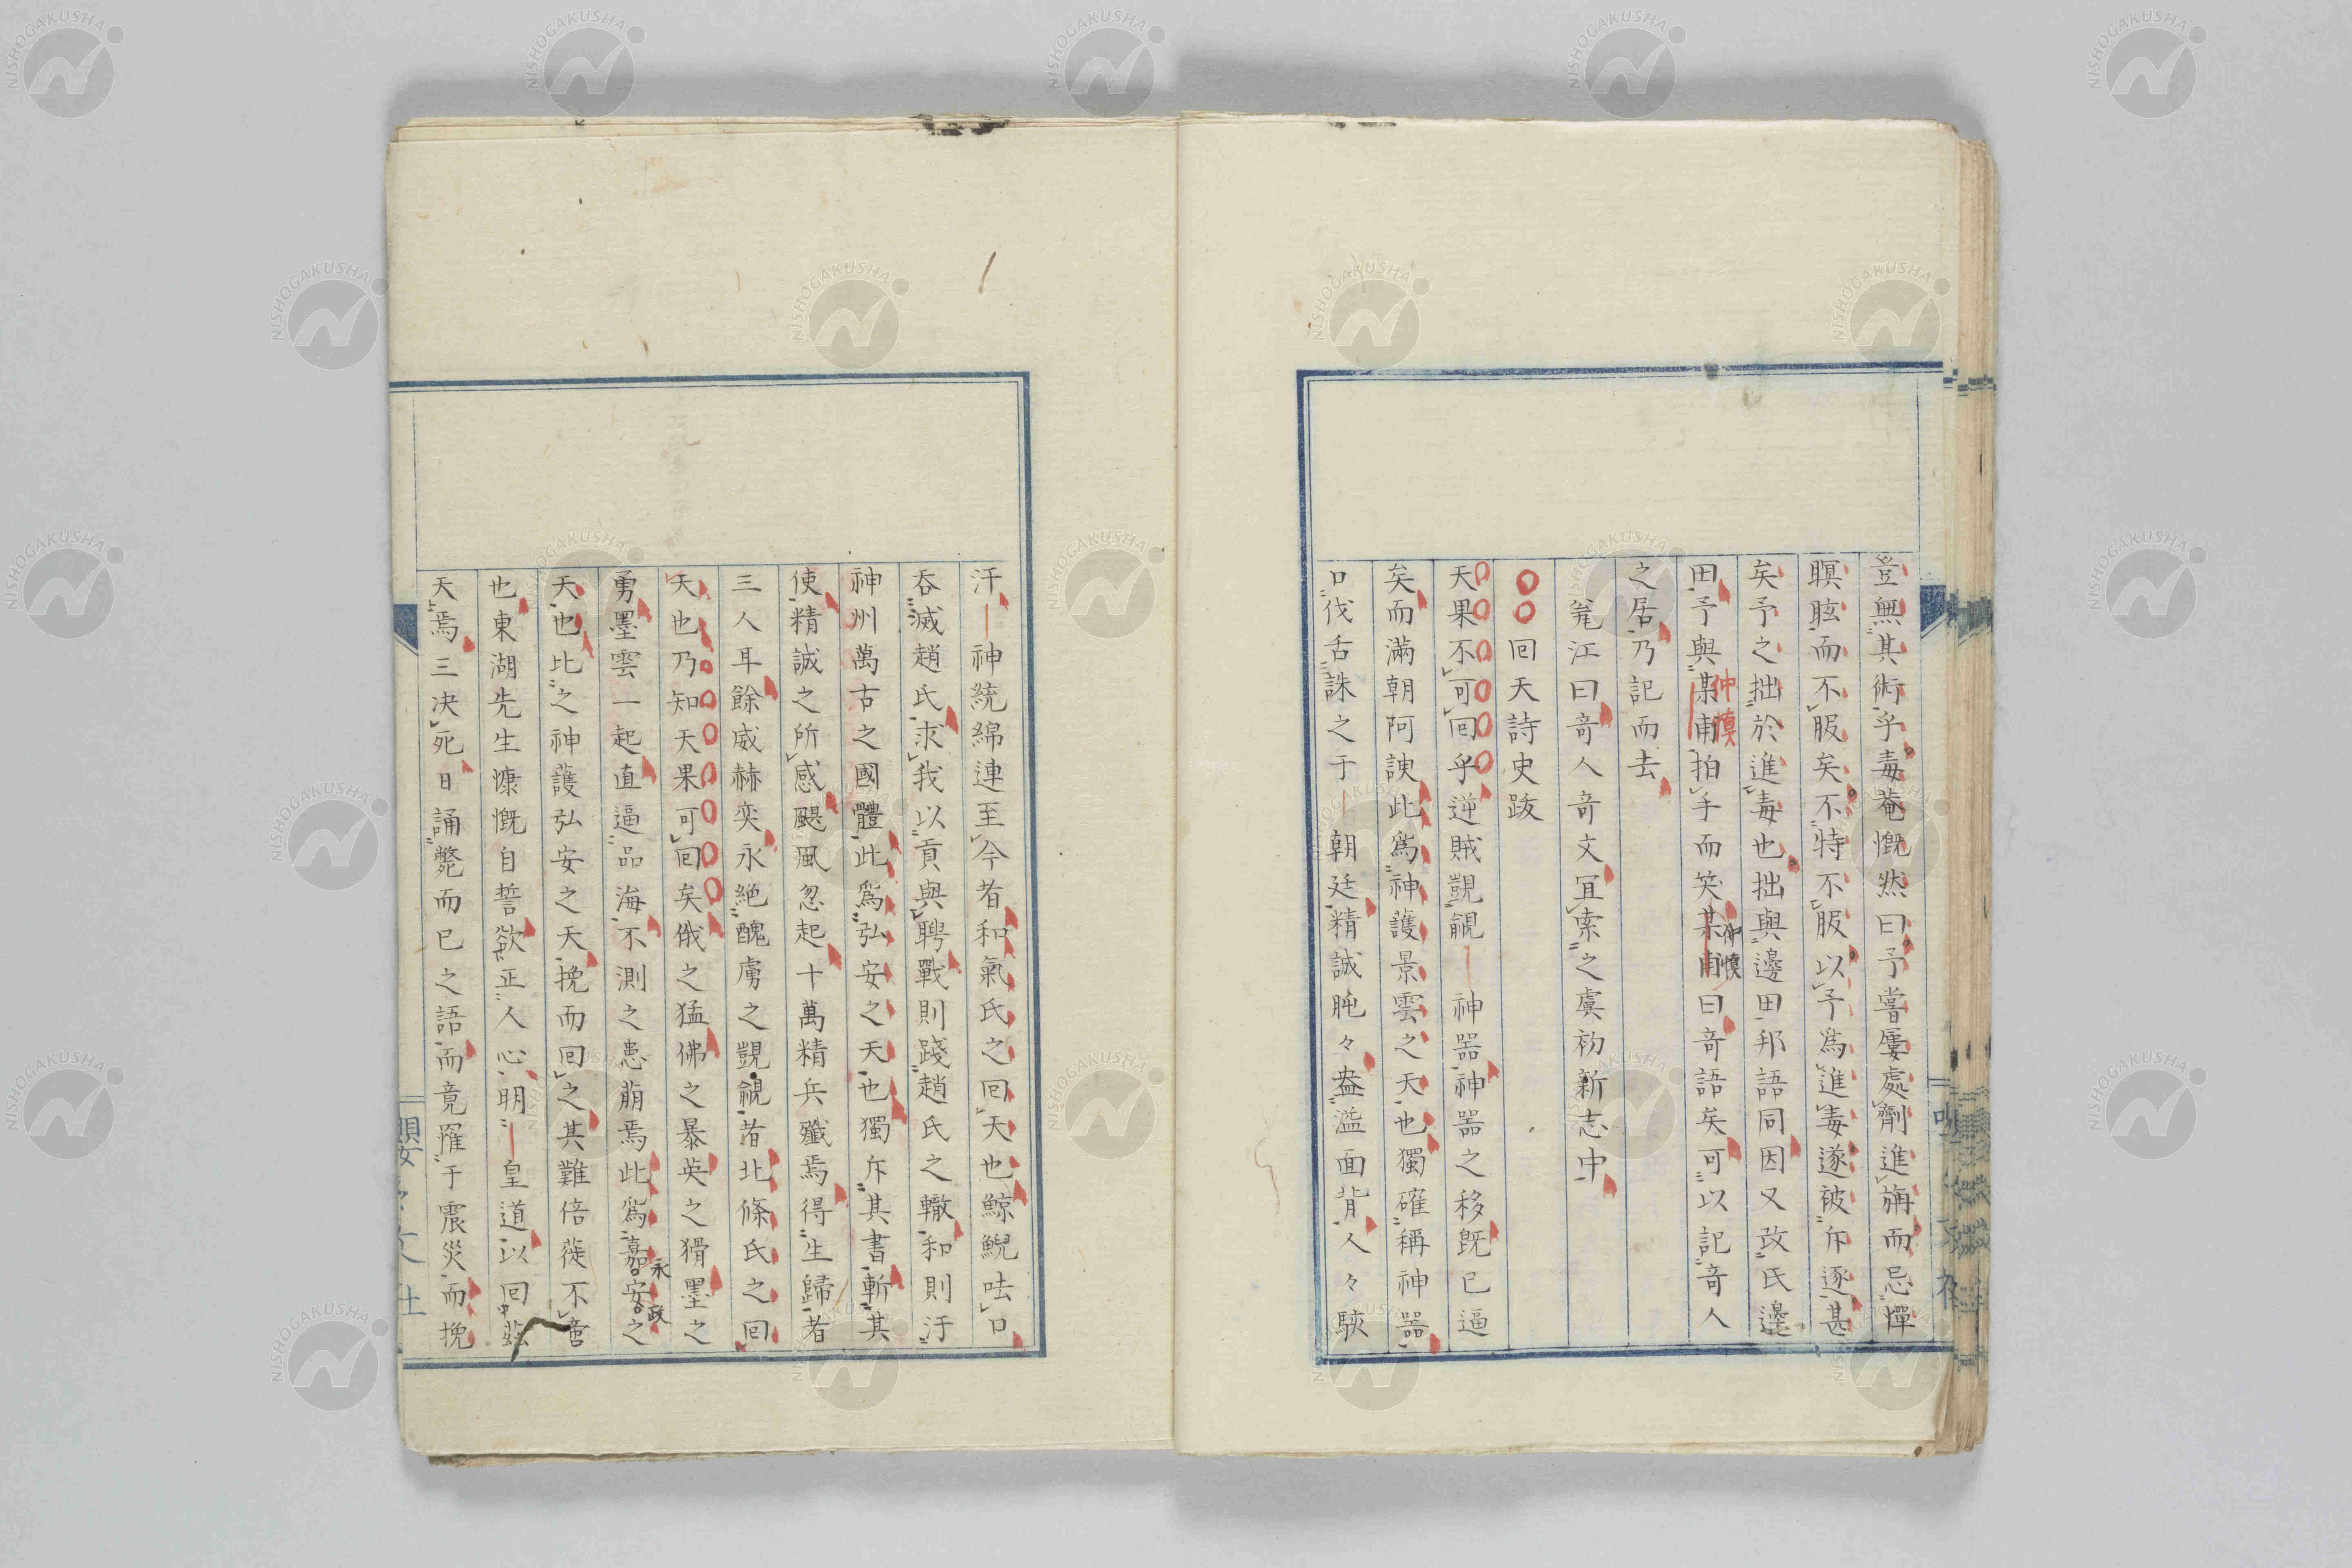 豈無其術乎毒菴慨然曰予嘗屢處劑進旃而忌憚
瞑眩而不服矣不特不服以予為進毒遂被斥逐甚
矣予之拙於進毒也拙與邊田邦語同因又改氏邊
田予與某甫拍手而笑某甫曰奇語矣可以記奇人
仲慎
仲慎
之居乃記而去
甕江曰奇人奇文宜索之虞初新志中
回天詩史跋
天果不可回乎逆賊覬覦神器神器之移既已逼
矣而滿朝阿諛此為神護景雲之天也獨確稱神器
口伐舌誅之于朝廷精誠肫々盎溢面背人々駭
汗神統綿連至今者和氣氏之回天也鯨鯢呿口
吞滅趙氏求我以貢與聘戰則踐趙氏之轍和則汙
神州萬古之國體此為弘安之天也獨斥其書斬其
使精誠之所感颶風忽起十萬精兵殲焉得生歸者
三人耳餘威赫奕永絶醜虜之覬覦者北條氏之回
天也乃知天果可回矣俄之猛佛之暴英之猾墨之
勇墨雲一起直逼品海不測之患萠焉此為嘉安之
永政
天也比之神護弘安之天挽而回之其難倍蓰不啻
也東湖先生慷慨自誓欲正人心明皇道以回
中
天焉三决死日誦斃而已之語而竟罹于震災而挽